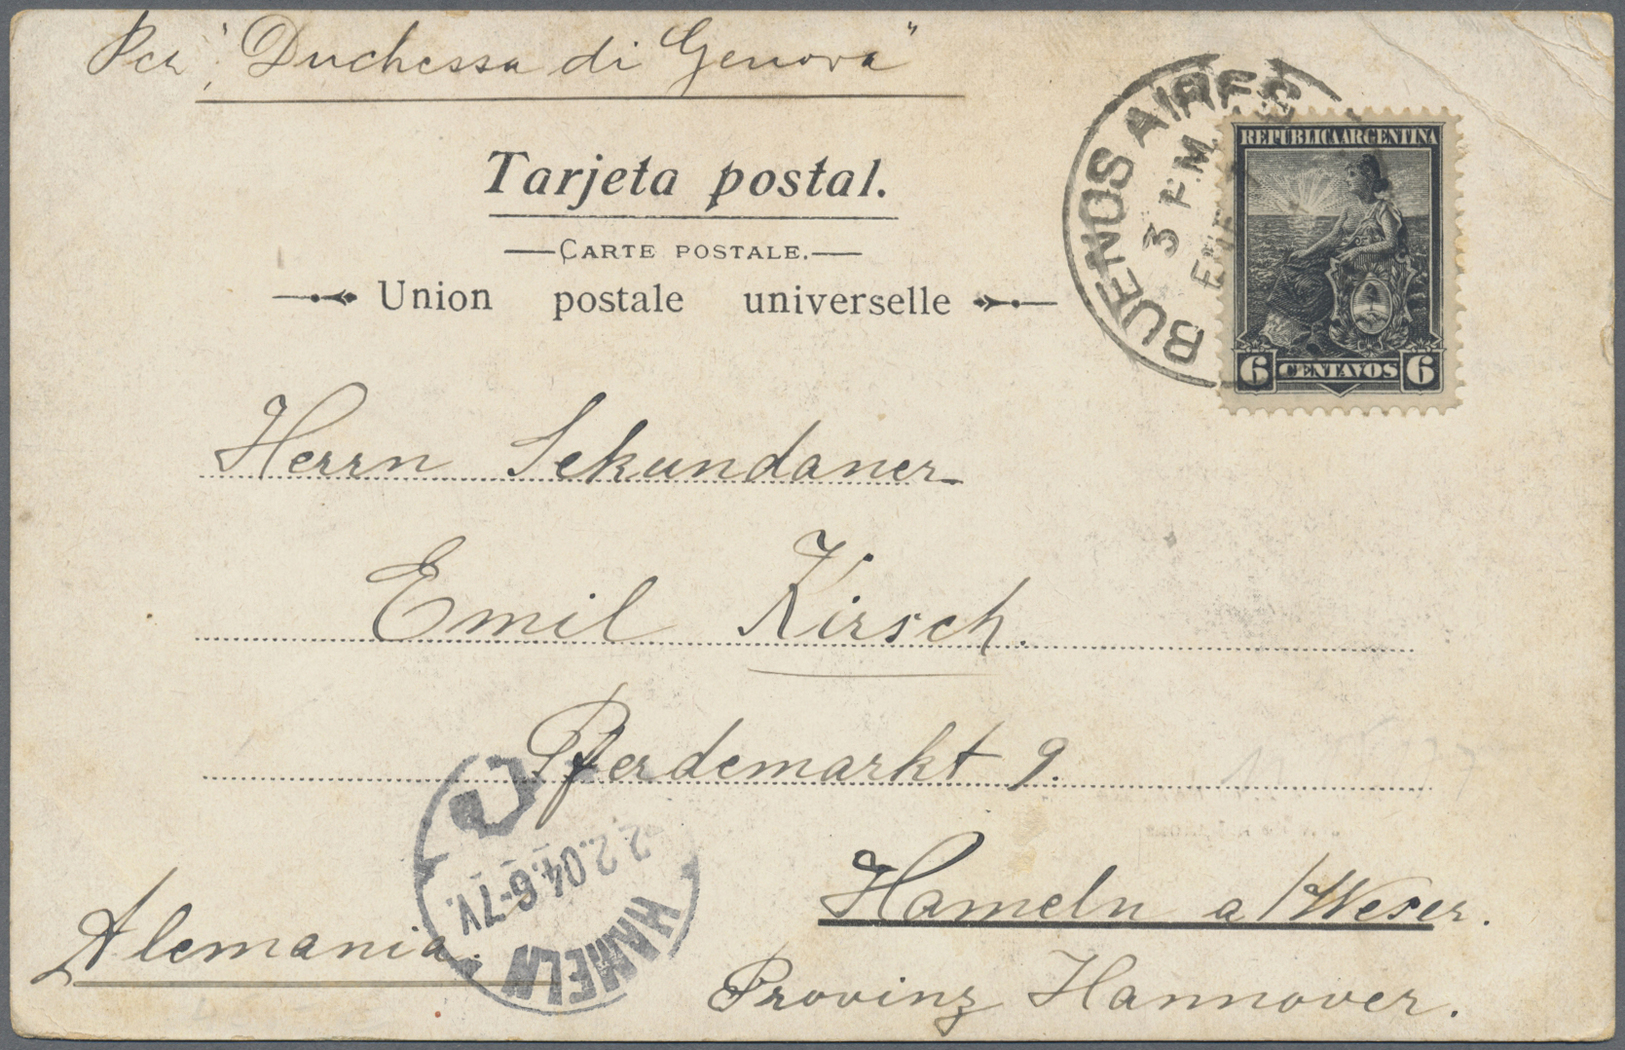 Per "Duchessa di Genova"
Tarjeta postal.
CARTE POSTALE.
Union postale universelle
BUENOS AIRES
3 P.M.
REPÚBLICA ARGENTINA
6 CENTAVOS 6
Herrn Sekundaner
Emil Kirsch.
Pferdemarkt 9.
Hameln a/Weser.
Provinz Hannover.
Alemania.
HAMELN
2.2.04.6-7V.